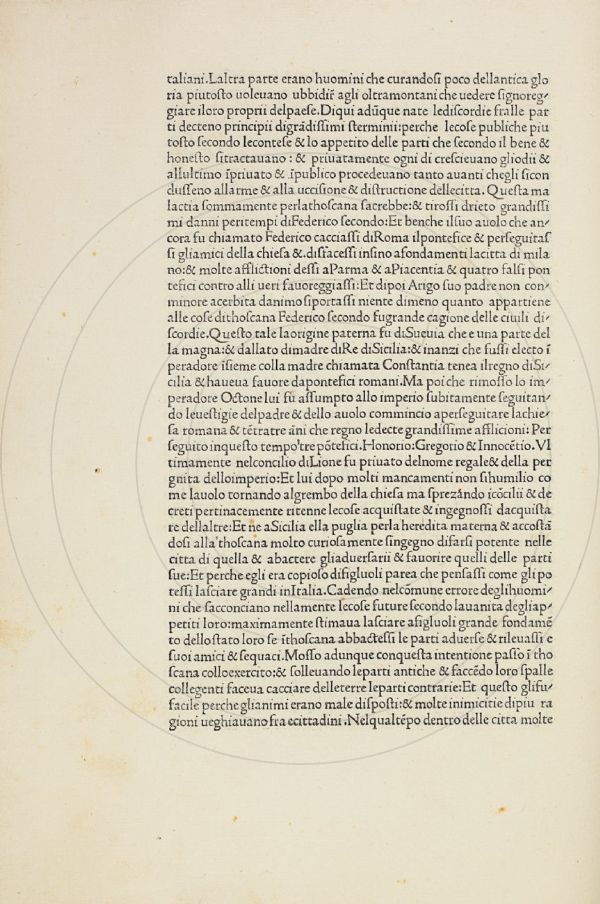 taliani.Laltra parte erano huomini che curandosi poco dellantica glo
ria piutosto uoleuano ubbidir̄ agli oltramontani che uedere signoreg⸗
giare iloro proprii delpaese.Diqui adūque nate lediscordie fralle par
ti decteno principii digrādissimi sterminii:perche lecose publiche piu
tosto secondo lecontese & lo appetito delle parti che secondo il bene &
honesto sitractauano : & priuatamente ogni di cresceuano gliodii &
allultimo īpriuato & īpublico procedeuano tanto auanti chegli sicon
dusseno allarme & alla uccisione & distructione dellecitta.Questa ma
lactia sommamente perlathoscana sacrebbe:& tirossi drieto grandissi
mi danni peritempi diFederico secondo:Et benche ilsuo auolo che an⸗
cora fu chiamato Federico cacciassi diRoma ilpontefice & perseguitas⸗
si gliamici della chiesa &.disfacessi insino afondamenti lacitta di mila
no:& molte afflictioni dessi aParma & aPiacentia & quatro falsi pon
tefici contro alli ueri fauoreggiassi:Et dipoi Arigo suo padre non con⸗
minore acerbita danimo siportassi niente dimeno quanto appartiene
alle cose dithoscana Federico secondo fugrande cagione delle ciuili di⸗
scordie.Questo tale laorigine paterna fu diSueuia che e una parte del
la magna:& dallato dimadre diRe diSicilia:& inanzi che fussi electo ī
peradore īsieme colla madre chiamata Constantia tenea ilregno diSi⸗
cilia & haueua fauore dapontefici romani.Ma poi che rimosso lo im⸗
peradore Octone lui fu assumpto allo imperio subitamente seguitan⸗
do leuestigie delpadre & dello auolo commincio aperseguitare lachie⸗
sa romana & tētratre āni che regno ledecte grandissime afflicioni: Per
seguito inquesto tempo tre pōtefici.Honorio:Gregorio & Innocētio.Vl
timamente nelconcilio diLione fu priuato delnome regale& della per
gnita delloimperio:Et lui dopo molti mancamenti non sihumilio co
me lauolo tornando algrembo della chiesa ma sprezādo icōcilii & de
creti pertinacemente ritenne lecose acquistate & ingegnossi dacquista
re dellaltre:Et ne aSicilia ella puglia perla heredita materna & accostā
dosi alla thoscana molto curiosamente singegno difarsi potente nelle
citta di quella & abactere gliaduersarii & fauorire quelli delle parti
sue:Et perche egli era copioso difigluoli parea che pensassi come gli po
tessi lasciare grandi inItalia.Cadendo nelcōmune errore deglihuomi⸗
ni che sacconciano nellamente lecose future secondo lauanita degliap⸗
petiti loro:maximamente stimaua lasciare afigluoli grande fondamē
to dello stato loro se īthoscana abbactessi le parti aduerse & rileuassi e
suoi amici & sequaci.Mosso adunque conquesta intentione passo ī tho
scana colloexercito:& solleuando leparti antiche & faccēdo loro spalle
collegenti faceua cacciare delleterre leparti contrarie:Et questo glifu⸗
facile perche glianimi erano male disposti:& molte inimicitie dipiu ra
gioni ueghiauano fra ecittadini.Nelqualtēpo dentro delle citta molte